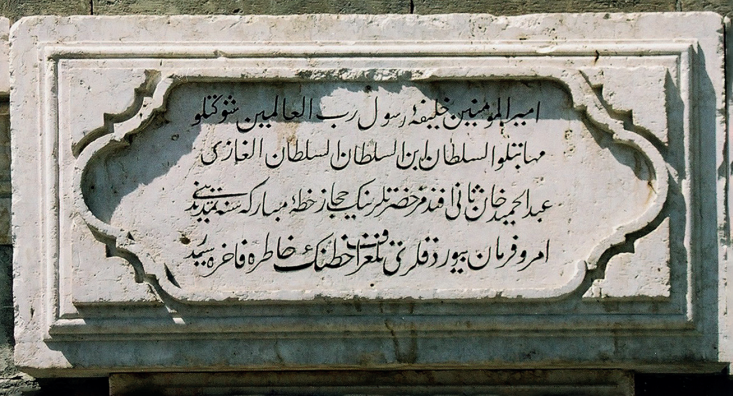 امير المؤمنين خليفۀ رسول رب العالمين شوكتلو
مهابتلو السلطان ابن السلطان السلطان الغازى
عبدالحميد خان ثانى افندمز حضرتلرينك حجاز خطۀ مباركه سنه تمديدينى
امر و فرمان بيوردقلرى تلغراف خطنك خاطرۀ فاخره سيدر